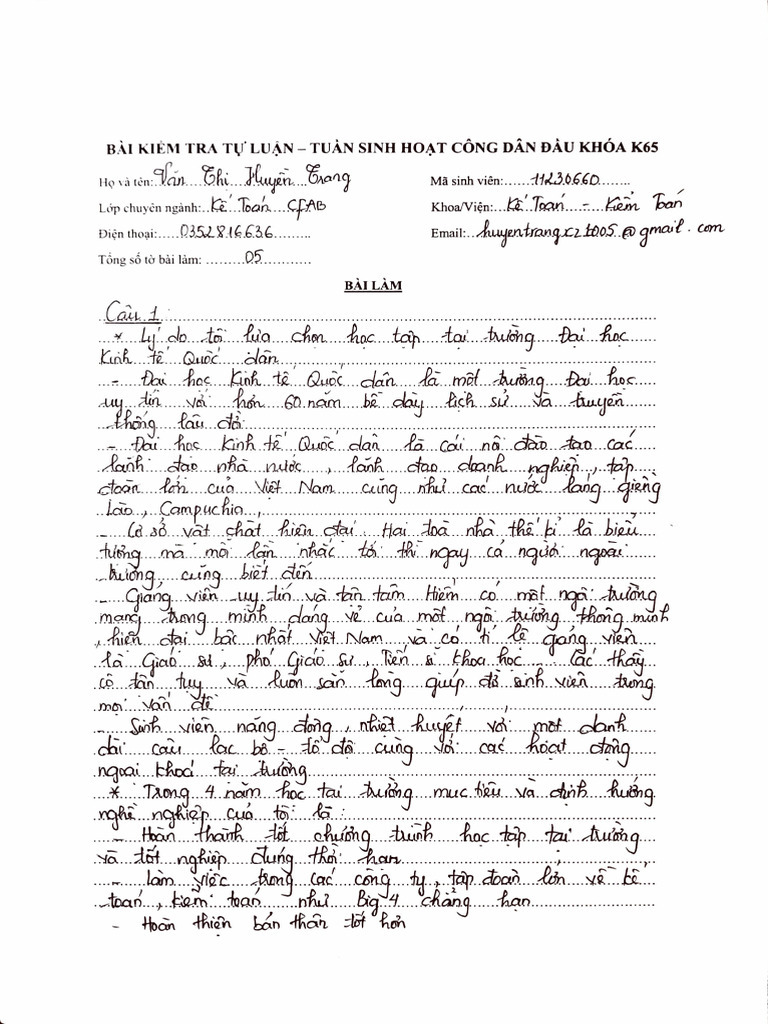 BÀI KIỂM TRA TỰ LUẬN – TUẦN SINH HOẠT CÔNG DÂN ĐẦU KHÓA K65
Họ và tên: Văn Thị Huyền Trang Mã sinh viên: 11230660
Lớp chuyên ngành: Kế Toán CFAB Khoa/Viện: Kế Toán - Kiểm Toán
Điện thoại: 0352816636 Email: huyentrangxz1005@gmail.com
Tổng số tờ bài làm: 05
BÀI LÀM
Câu 1:
* Lý do tôi lựa chọn học tập tại trường Đại học
Kinh tế Quốc dân
- Đại học Kinh tế Quốc dân là một trường Đại học
uy tín với hơn 60 năm bề dày lịch sử và truyền
thống lâu đời
- Đại học Kinh tế Quốc dân là cái nôi đào tạo các
lãnh đạo nhà nước, lãnh đạo doanh nghiệp, tập
đoàn lớn của Việt Nam cũng như các nước láng giềng
Lào, Campuchia,
- Cơ sở vật chất hiện đại. Hai toà nhà thế kỉ là biểu
tượng mà mỗi lần nhắc tới thì ngay cả người ngoài
trường cũng biết đến
- Giảng viên uy tín và tận tâm Hiếm có một ngôi trường
mang trong mình dáng vẻ của một ngôi trường thông minh
, hiện đại bậc nhất Việt Nam và có tỉ lệ giảng viên
là Giáo sư, phó Giáo sư, Tiến sĩ khoa học Các thầy
cô tận tụy và luôn sẵn lòng giúp đỡ sinh viên trong
mọi vấn đề
- Sinh viên năng động, nhiệt huyết với một danh
dài câu lạc bộ - tổ đội cùng với các hoạt động
ngoại khoá tại trường
* Trong 4 năm học tại trường mục tiêu và định hướng
nghề nghiệp của tôi là:
- Hoàn thành tốt chương trình học tập tại trường
và tốt nghiệp đúng thời hạn
- Làm việc trong các công ty, tập đoàn lớn về kế
toán, kiểm toán như Big 4 chẳng hạn
- Hoàn thiện bản thân tốt hơn